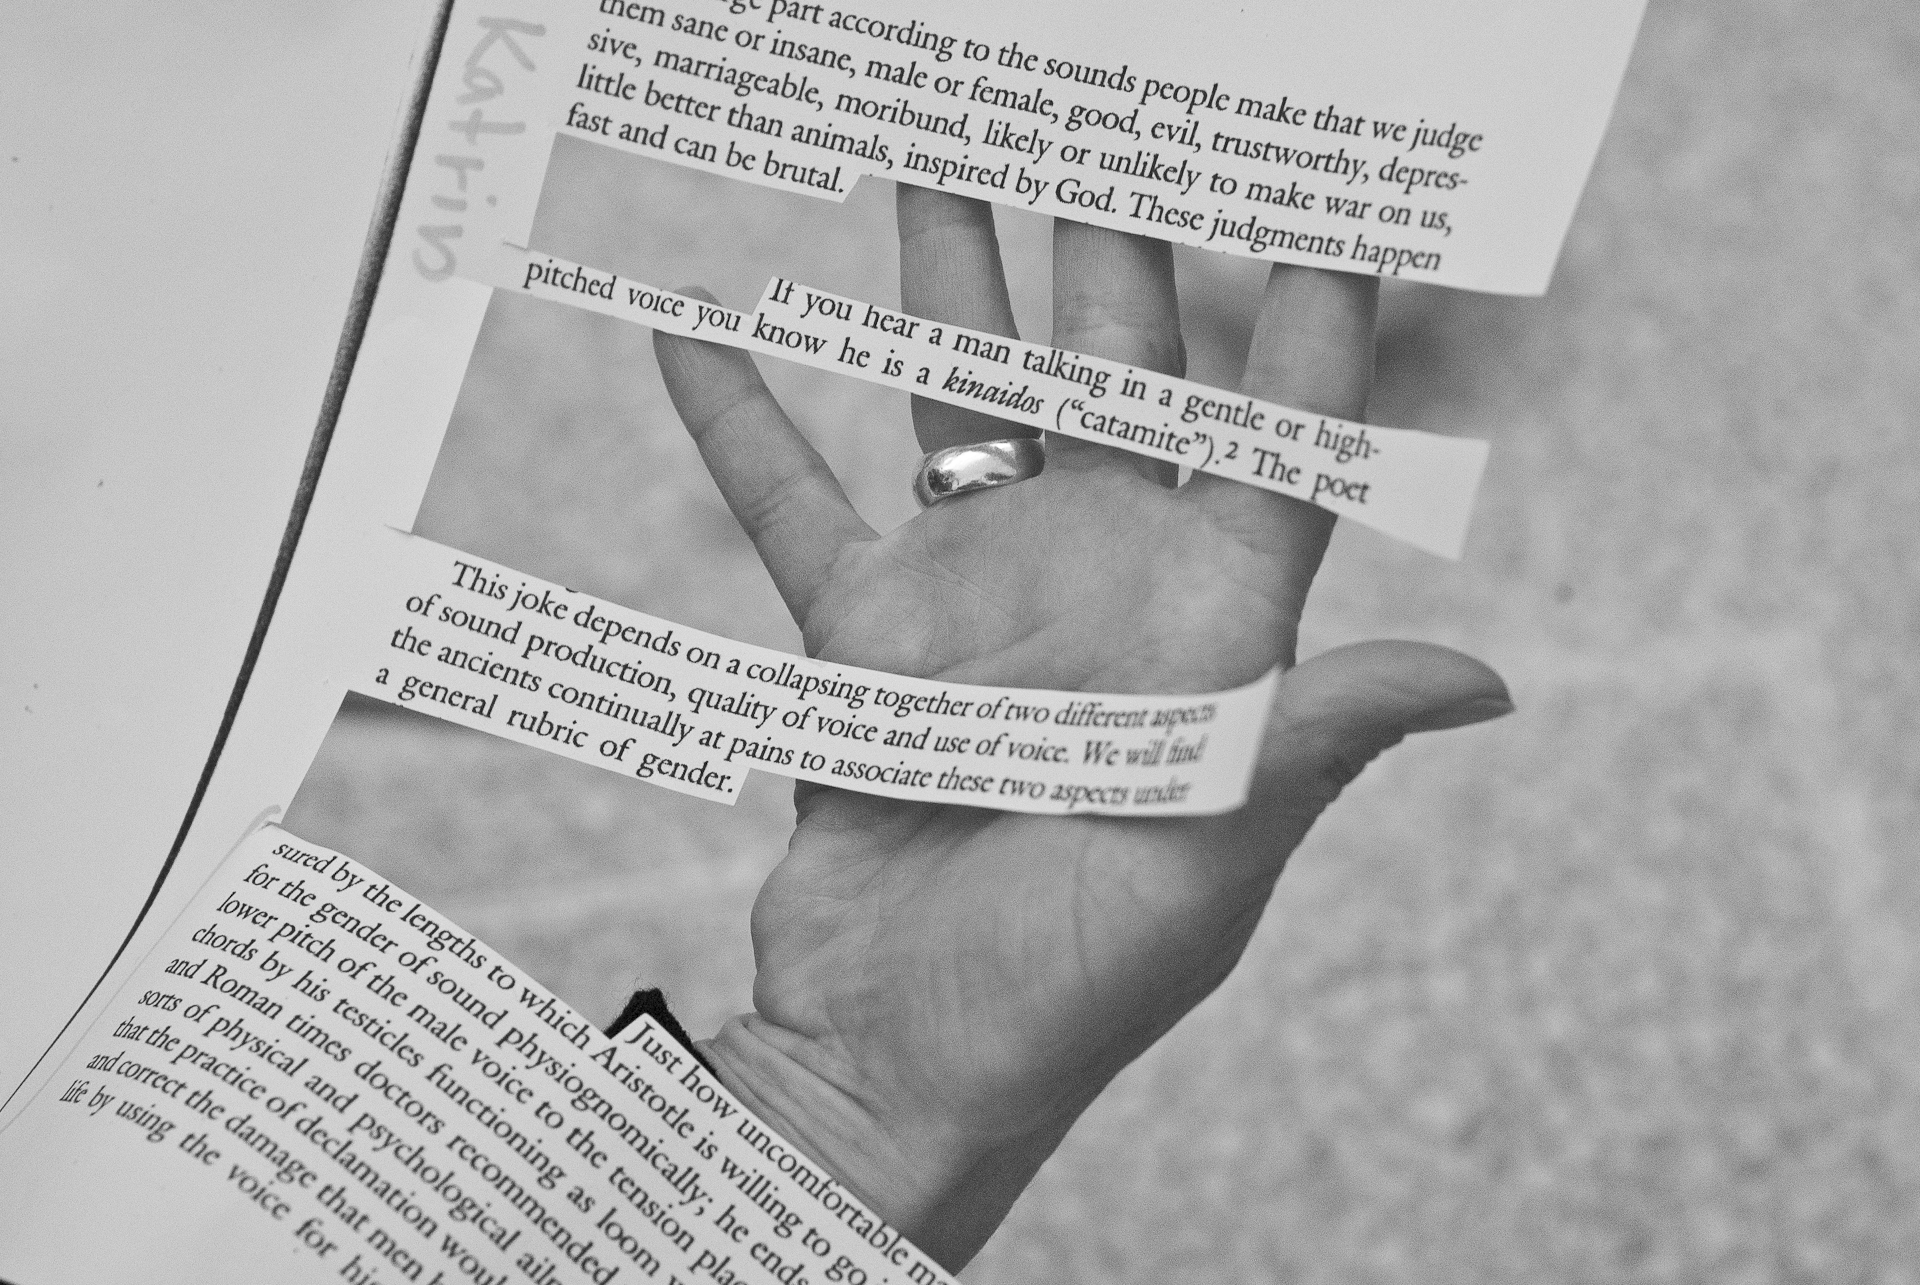 Katrin
part according to the sounds people make that we judge
them sane or insane, male or female, good, evil, trustworthy, depres-
sive, marriageable, moribund, likely or unlikely to make war on us,
little better than animals, inspired by God. These judgments happen
fast and can be brutal.
If you hear a man talking in a gentle or high-
pitched voice you know he is a kinaidos (“catamite”).² The poet
This joke depends on a collapsing together of two different aspects
of sound production, quality of voice and use of voice. We will find
the ancients continually at pains to associate these two aspects under
a general rubric of gender.
Just how uncomfortable
sured by the lengths to which Aristotle is willing to go
for the gender of sound physiognomically; he ends
lower pitch of the male voice to the tension
chords by his testicles functioning as loom
and Roman times doctors recommended
sorts of physical and psychological
that the practice of declamation
and correct the damage that men
life by using the voice for